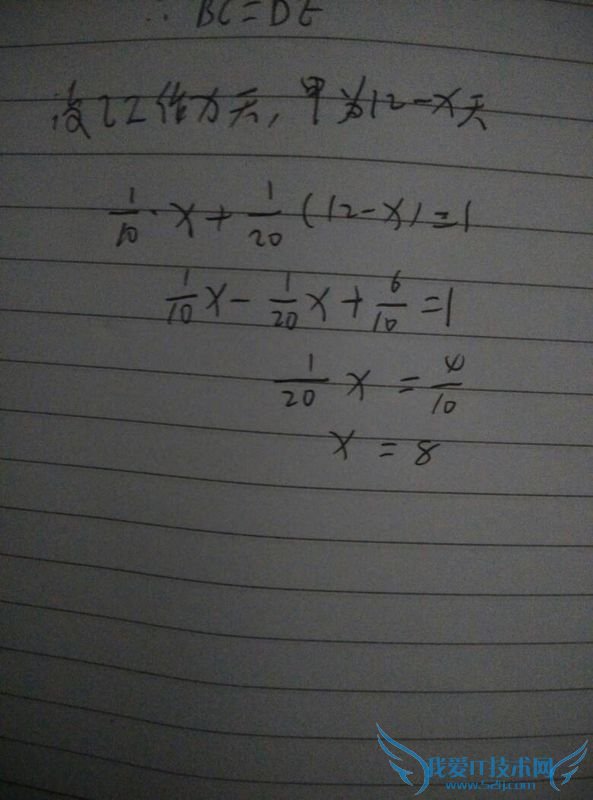 ∴ BC=DE
设乙工作为天,甲为12-x天
1/10·x+1/20(12-x)=1
1/10x-1/20x+6/10=1
1/20x=4/10
x=8
我爱IT技术网
www.52ij.com